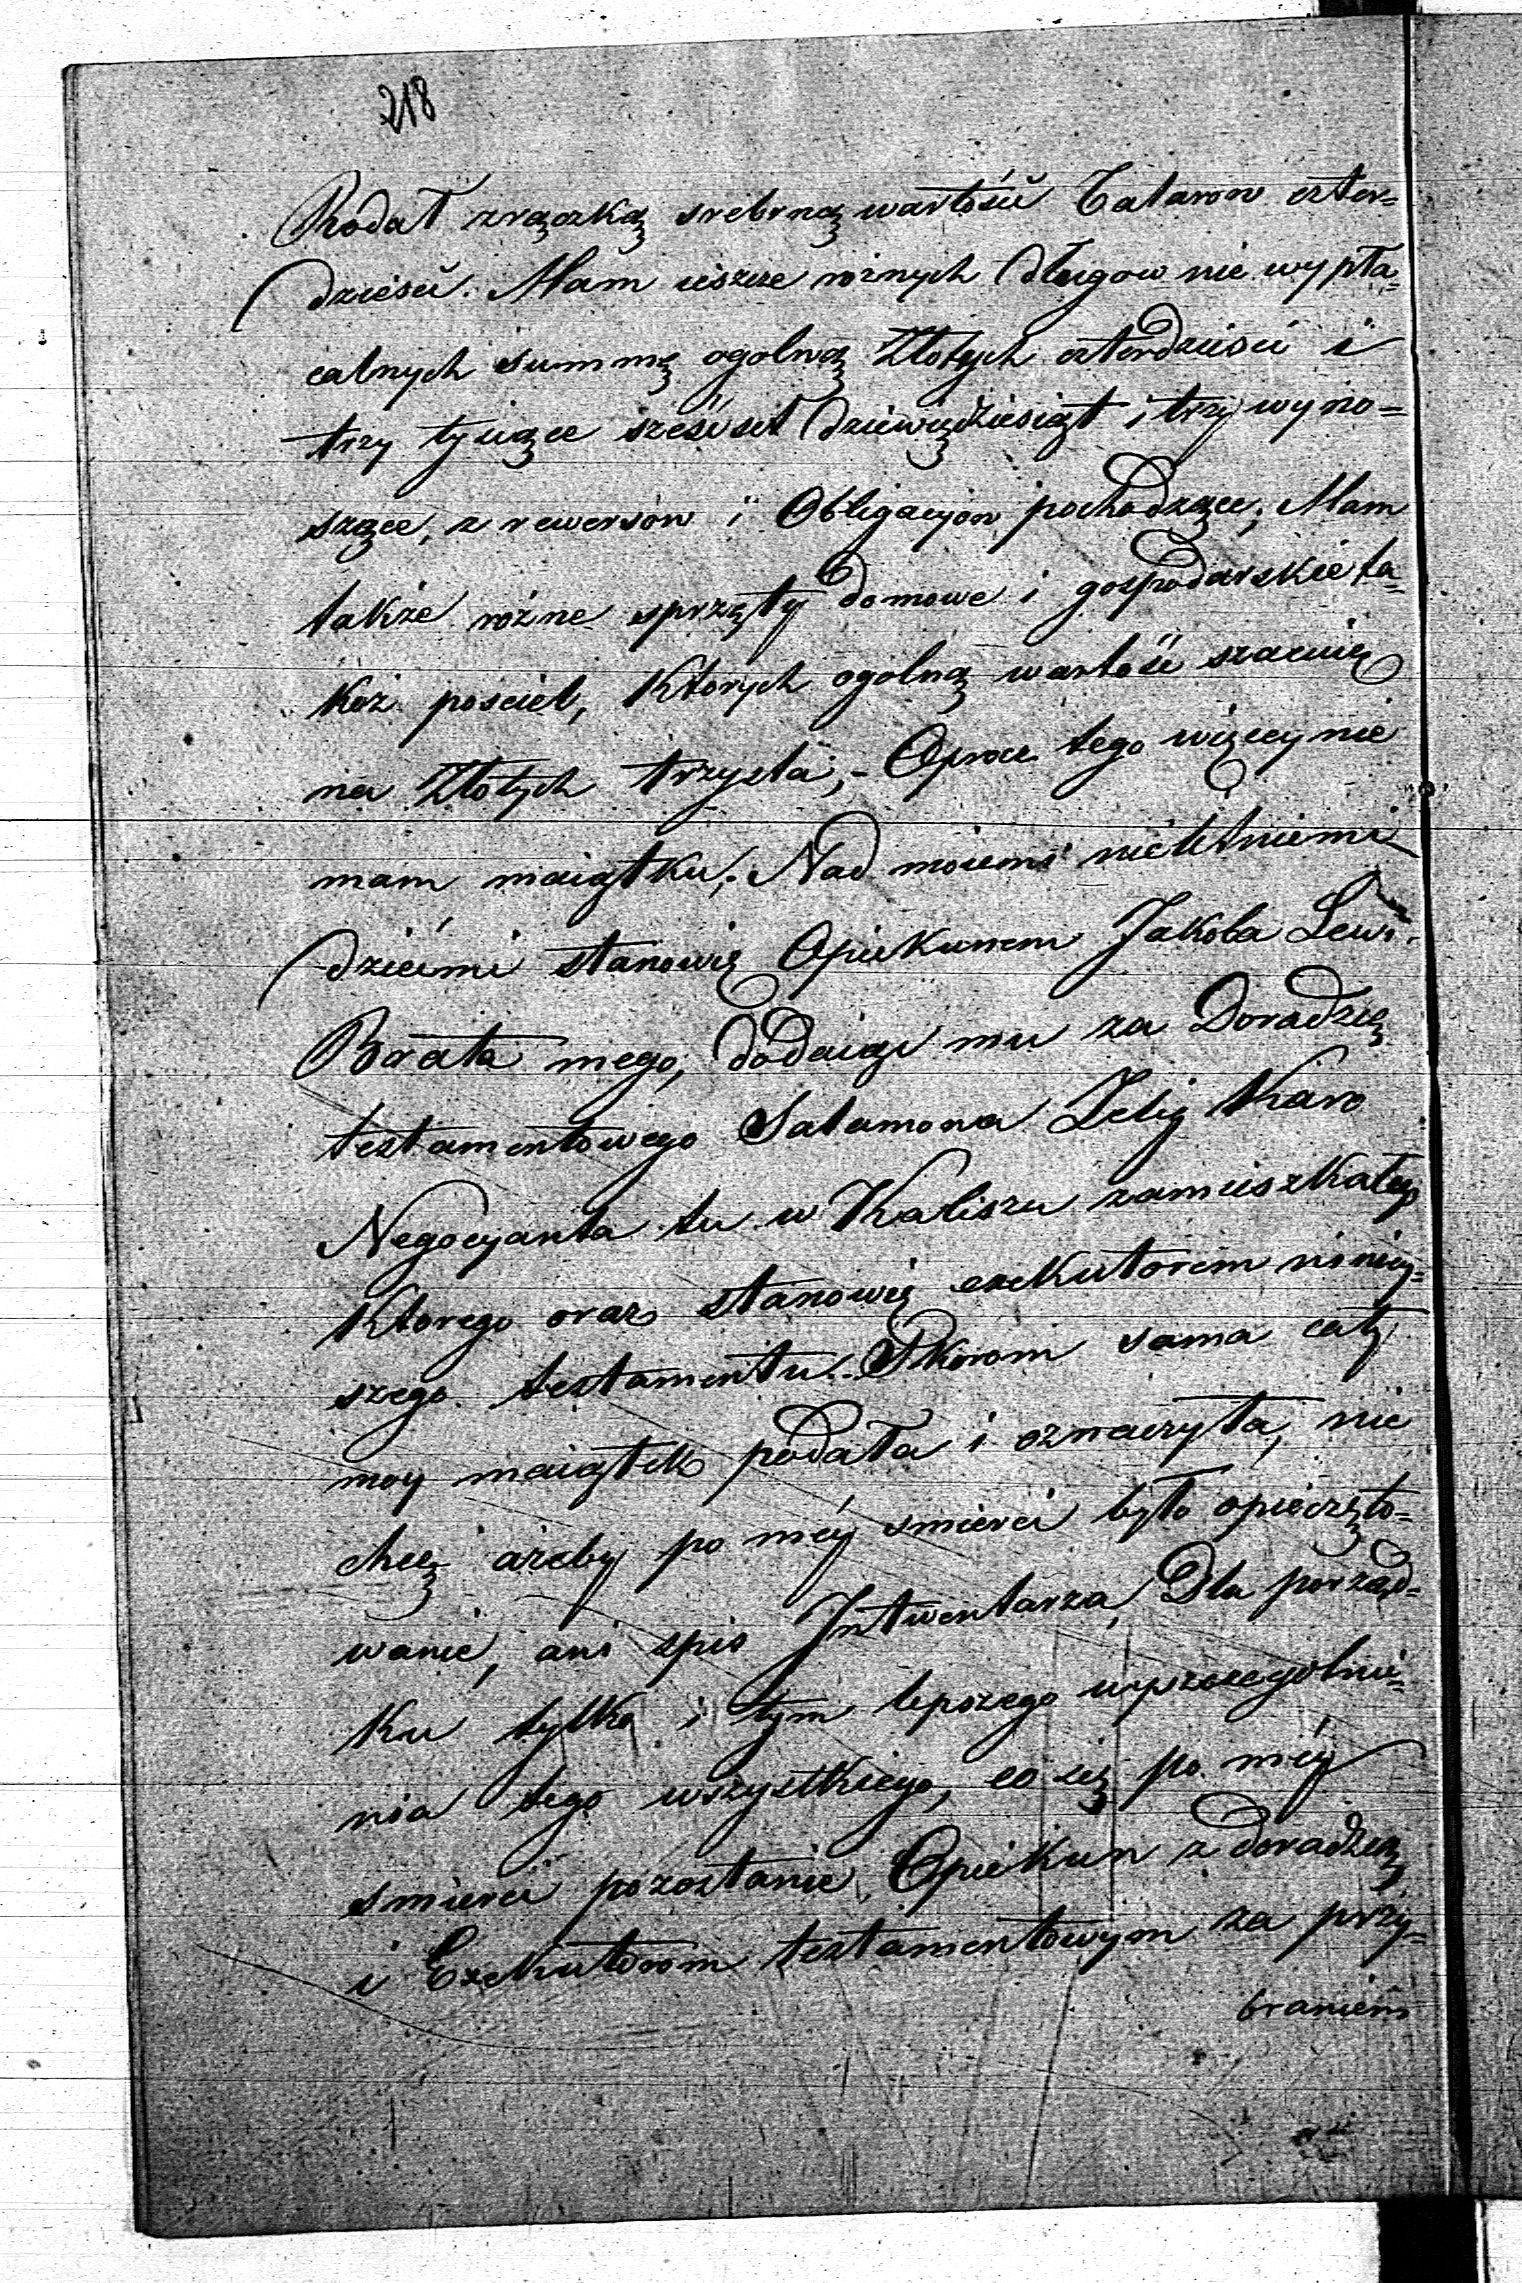 218
Rodał z rączką srebrną wartości Talarow czter=
dzieści. Mam ieszcze rożnych długow nie wypła=
calnych summę ogolną Złotych czterdzieści i
trzy tysiące sześćset dziewiędziesiąt i trzy wyno=
szące, z rewersow i Obligacyow pochodzące; Mam
także rożne sprzęty domowe i gospodarskie ta=
koż pościel, Ktorych ogolną wartość szacuię
na Złotych trzysta; - Oprocz tego więcey nie
mam maiątku; Nad moiemi nieletniemi
dziećmi stanowię Opiekunem Jakoba Lewi
Brata mego, dodaiąc mu za Doradzcę
testamentowego Salamona Zelig Karo
Negocyanta tu w Kaliszu zamieszkałego
Ktorego oraz stanowię exekutorem niniey=
szego testamentu. Skorom sama cały
moy maiątek podała i oznaczyła, nie
chcę ażeby po méy smierci było opieczęto=
wanie, ani spis Intwentarza, Dla porząd=
ku tylko i tym lepszego wyszczegolnie=
nia tego wszystkiego, co się po méy
smierci pozostanie, Opiekun z doradzcą
i Exekutorom testamentowym za przy=
braniem